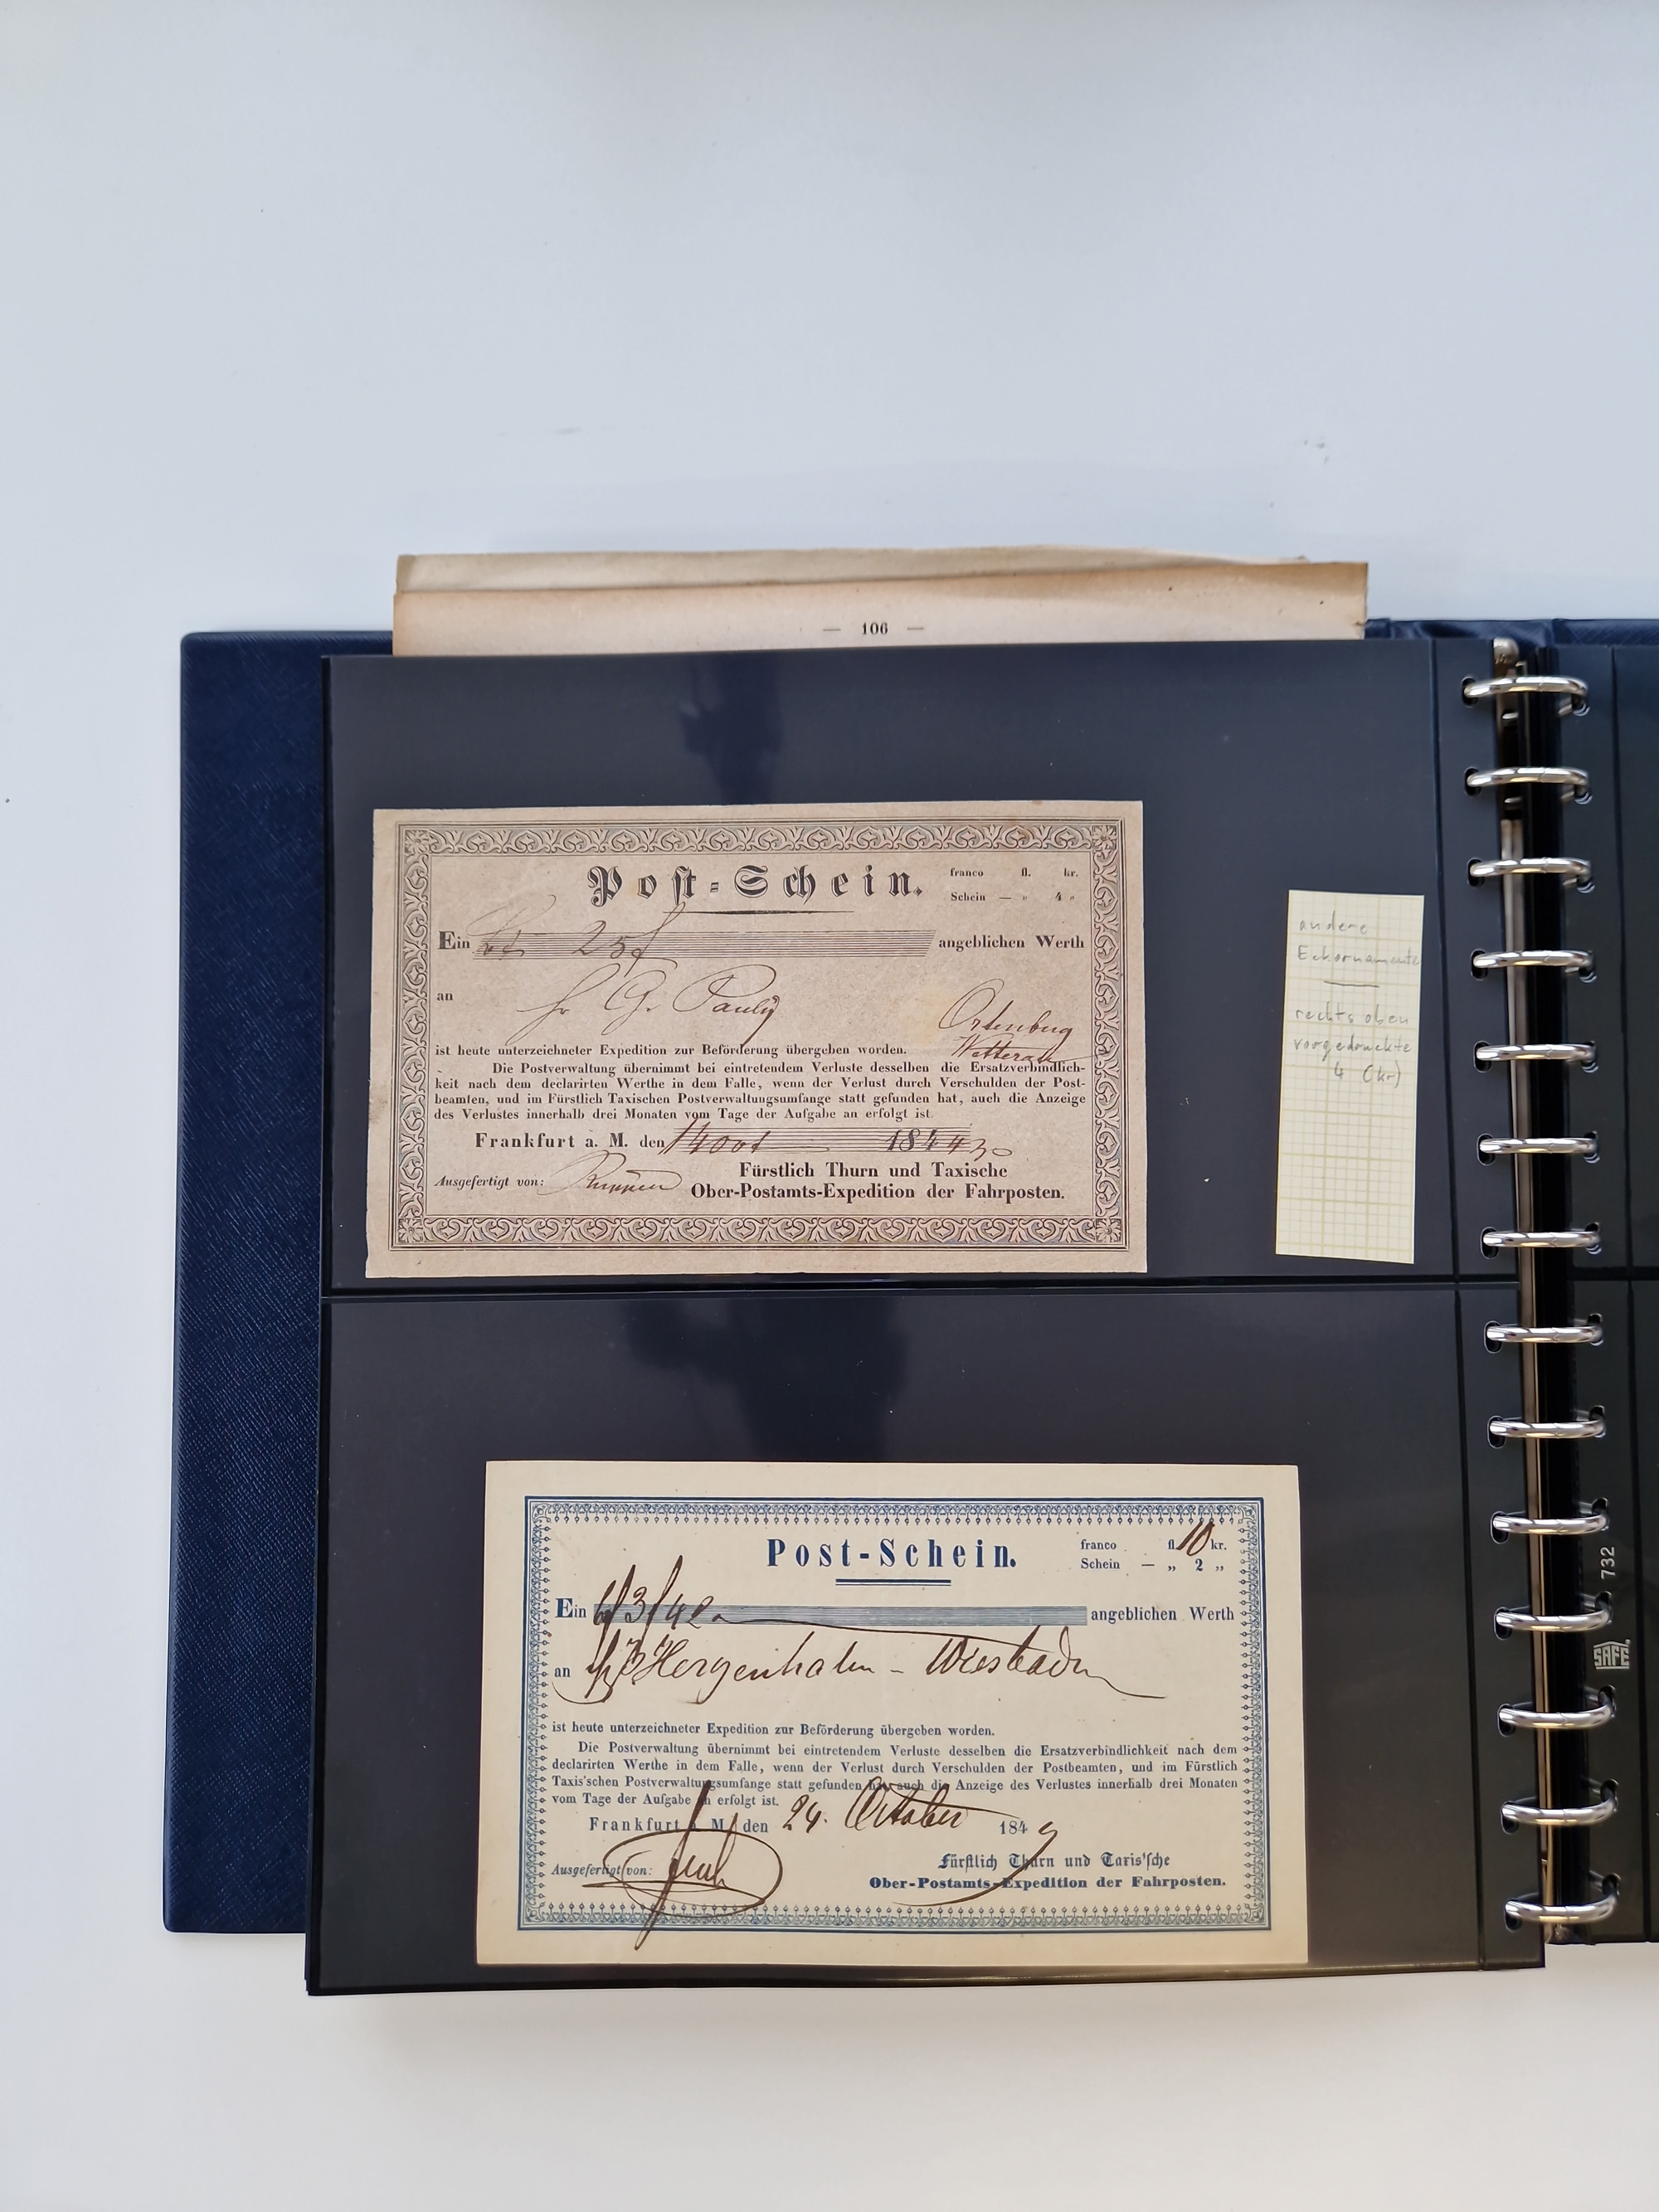 — 106 —
Post-Schein.
franco fl. kr.
Schein — " 4 "
Ein 25 f angeblichen Werth
an G. Pauly Ortenberg
Wetterau
ist heute unterzeichneter Expedition zur Beförderung übergeben worden.
Die Postverwaltung übernimmt bei eintretendem Verluste desselben die Ersatzverbindlich-
keit nach dem declarirten Werthe in dem Falle, wenn der Verlust durch Verschulden der Post-
beamten, und im Fürstlich Taxischen Postverwaltungsumfange statt gefunden hat, auch die Anzeige
des Verlustes innerhalb drei Monaten vom Tage der Aufgabe an erfolgt ist.
Frankfurt a. M. den 14 Oct 184
Ausgefertigt von:
Fürstlich Thurn und Taxische
Ober-Postamts-Expedition der Fahrposten.
andere
Eckornamente
rechts oben
vorgedruckte
4 (kr)
Post-Schein.
franco fl. 10 kr.
Schein — „ 2 „
Ein 3 f 42 angeblichen Werth
an Hergenhahn – Wiesbaden
ist heute unterzeichneter Expedition zur Beförderung übergeben worden.
Die Postverwaltung übernimmt bei eintretendem Verluste desselben die Ersatzverbindlichkeit nach dem
declarirten Werthe in dem Falle, wenn der Verlust durch Verschulden der Postbeamten, und im Fürstlich
Taxis'schen Postverwaltungsumfange statt gefunden hat, auch die Anzeige des Verlustes innerhalb drei Monaten
vom Tage der Aufgabe an erfolgt ist.
Frankfurt a. M. den 24. October 1849
Ausgefertigt von:
Fürstlich Thurn und Taxis'sche
Ober-Postamts-Expedition der Fahrposten.
732
SAFE